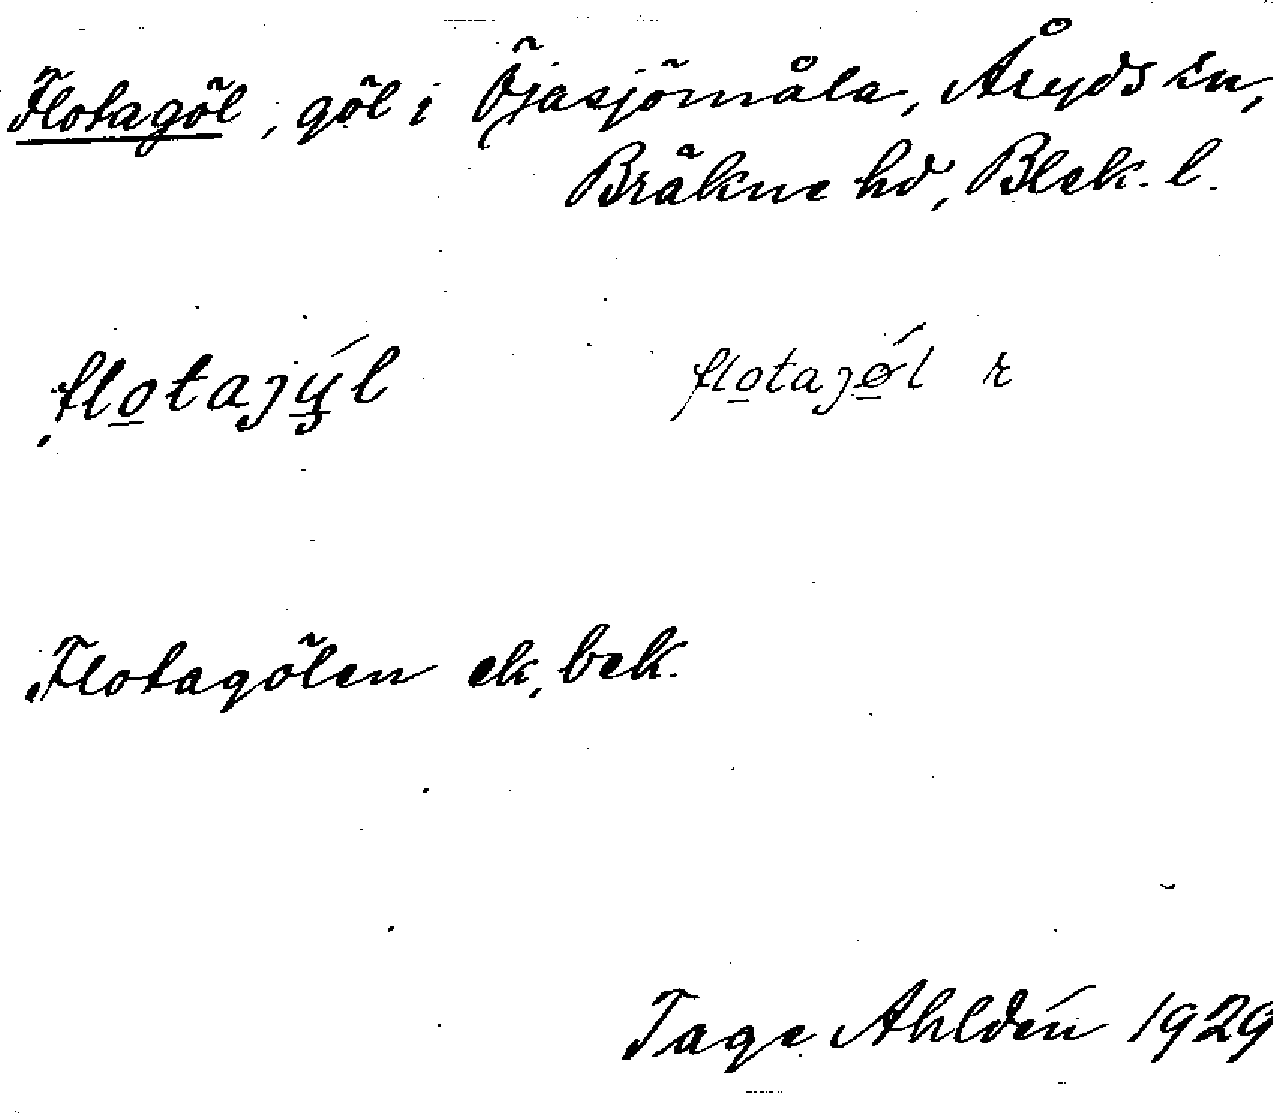 Flotagöl, göl i Öjasjömåla, Åryds sn,
Bräkne hd, Blek. l.
flo̲tajý̲l flo̲tajǿ̲l r
Flotagölen ek, bek.
Tage Ahldén 1929